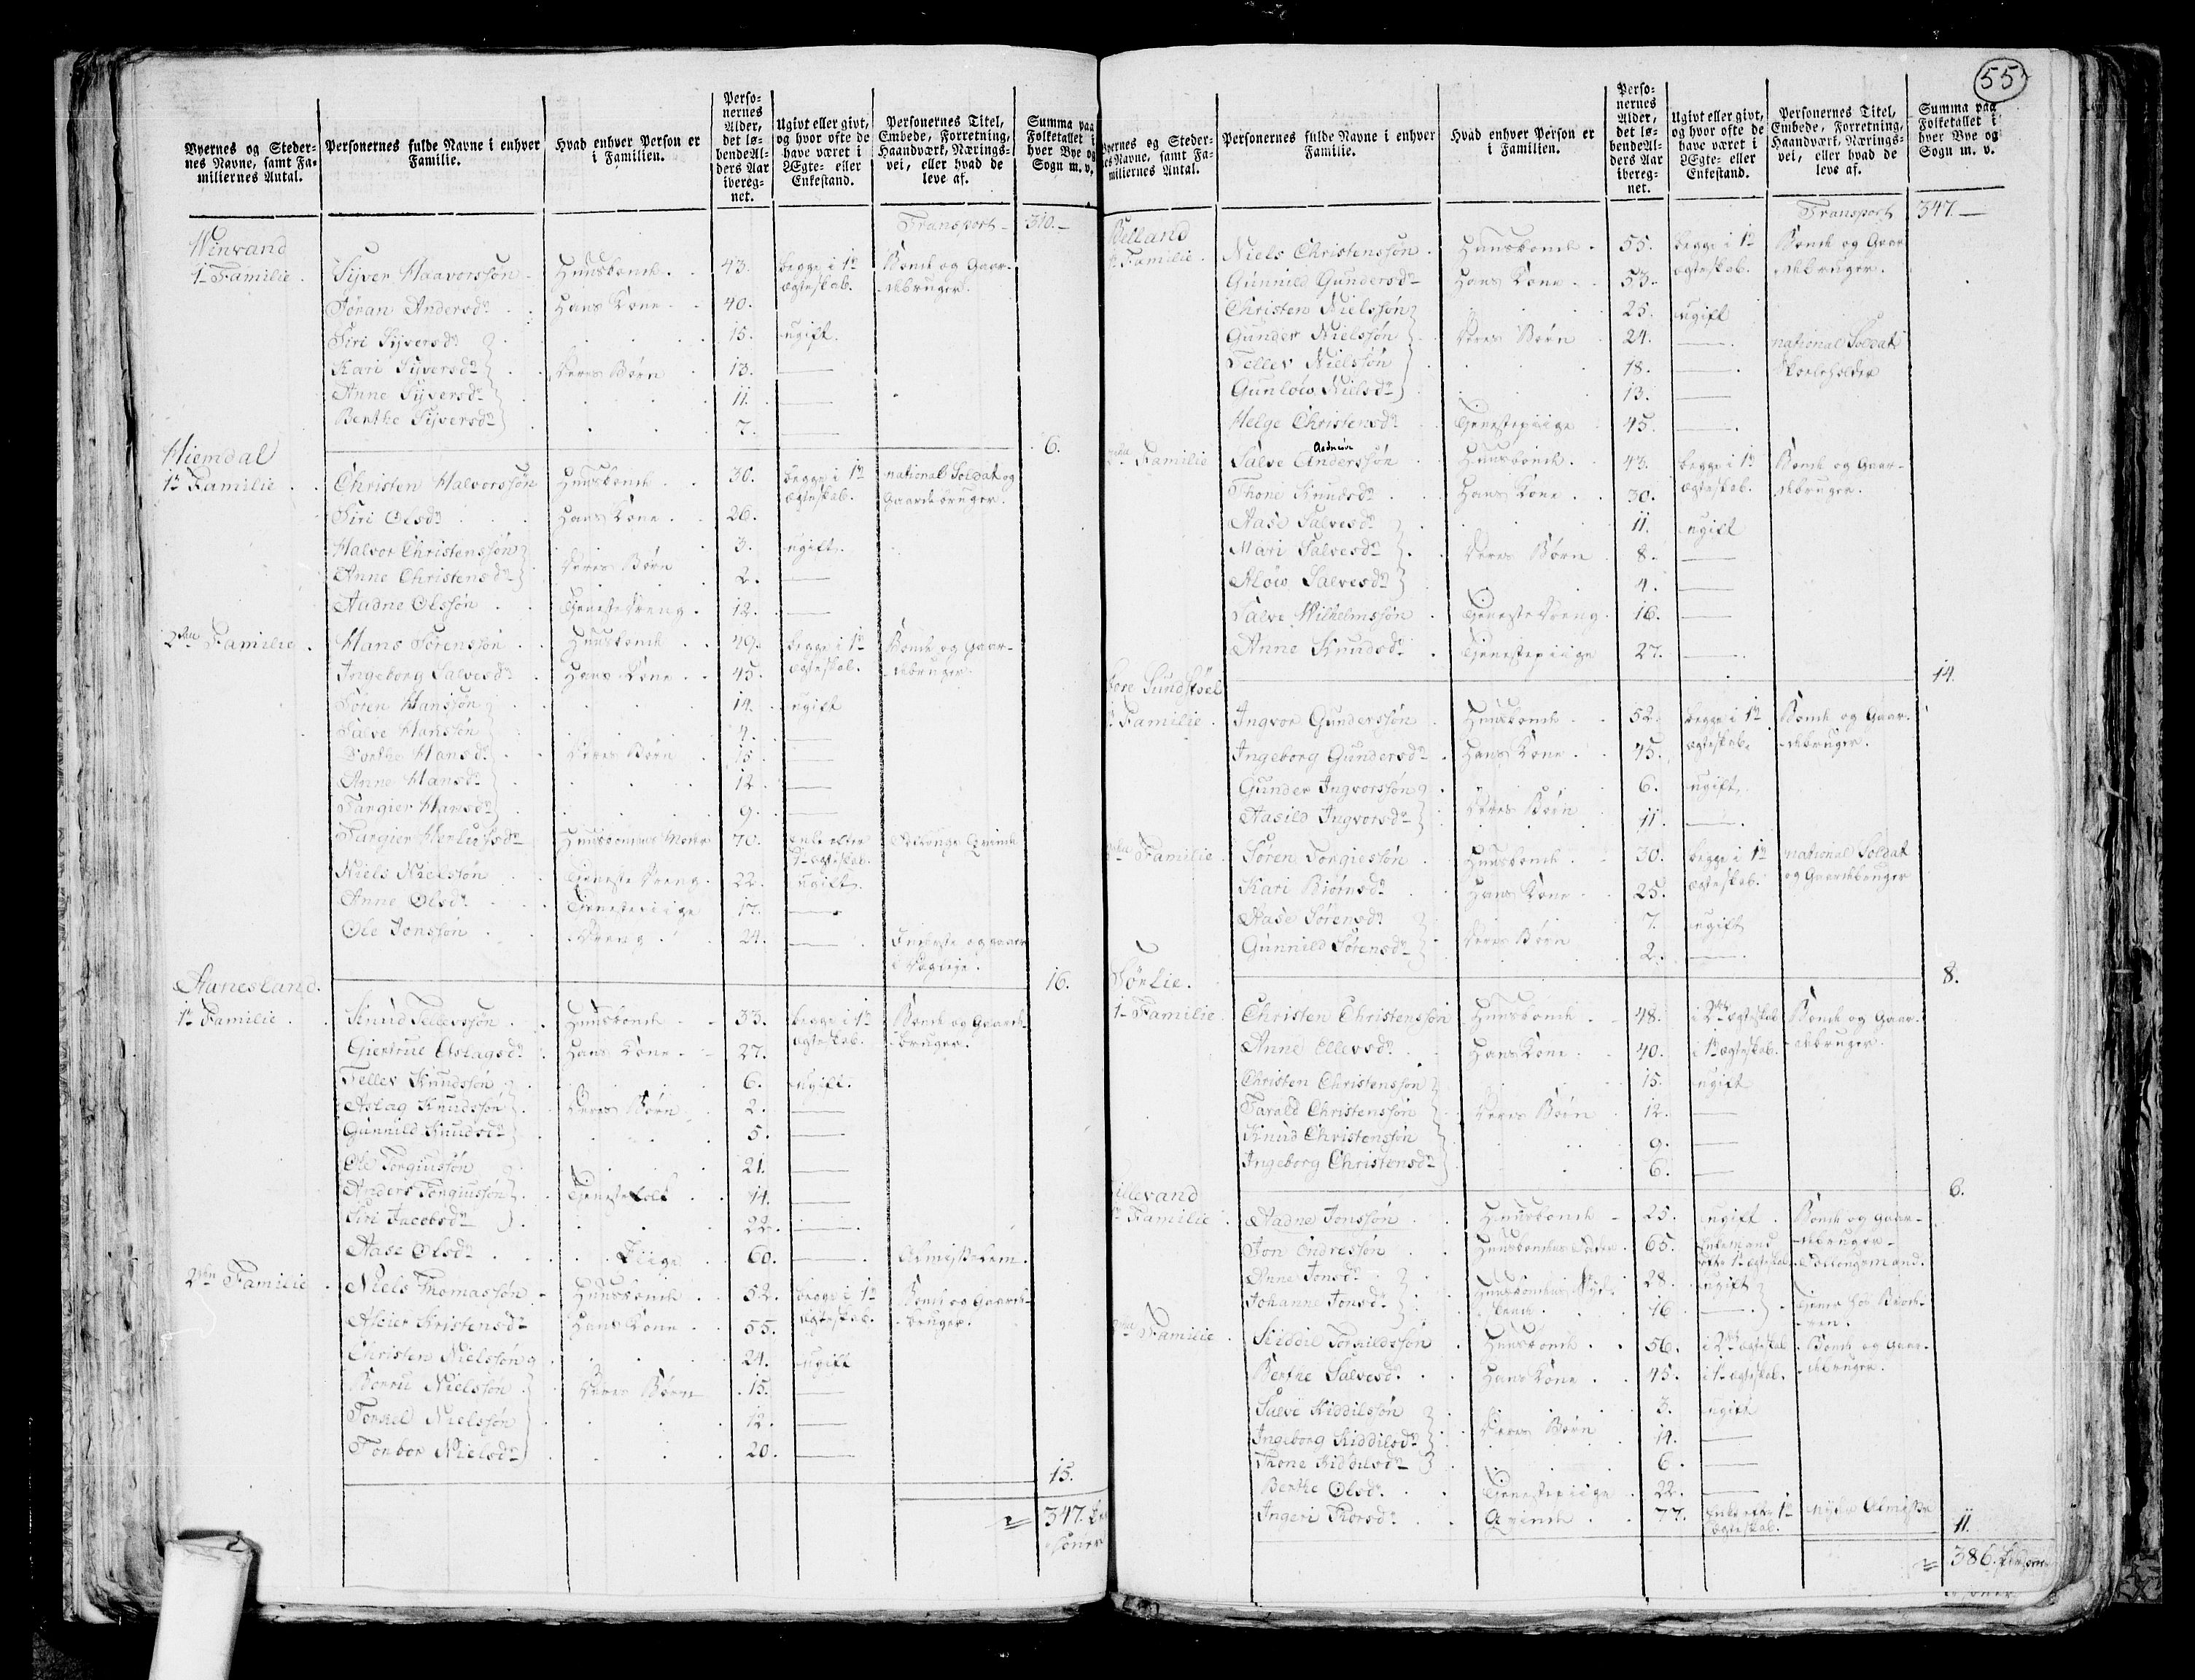 55
Byernes og Steder-
nes Navne, samt Fa-
miliernes Antal.
Personernes fulde Navne i enhver
Familie.
Hvad enhver Person er
i Familien.
Perso-
nernes
Alder,
det lø-
bende Al-
ders Aar
ibereg-
net.
Ugivt eller givt,
og hvor ofte de
have været i
Ægte- eller
Enkestand.
Personernes Titel,
Embede, Forretning,
Haandværk, Nærings-
vei, eller hvad de
leve af.
Summa paa
Folketallet i
hver Bye og
Sogn m. v.
Transport 310.
Winrand
1te Familie. Sijver Haavorssøn Huusbonde. 43. begge i 1te Bonde og Gaar-
ægteskab. debruger.
Jøran Andersdr. Hans Kone 40.
Siri Sijversdr 15. ugift.
Kari Sijversdr Deres Børn 13. —
Anne Sijversdr 11. —
Berthe Sijversdr 7. —
6.
Hiemdal
1te Familie. Christen Halvorssøn Huusbonde. 30. begge i 1te national Soldat og
ægteskab. Gaardebruger.
Siri Olsdr Hans Kone. 26.
Halvor Christenssøn 3. ugift.
Anne Christensdr Deres Børn 2. —
Aadne Olssøn Tienestedreng. 12. —
2den Familie. Hans Sørenssøn Huusbonde 49. begge i 1te Bonde og Gaar-
ægteskab. debruger.
Ingeborg Salvesdr Hans Kone. 45.
Søren Hanssøn 14. ugift
Salve Hanssøn 4. —
Dorthe Hansdr. Deres Børn 15 —
Anne Hansdr 12 —
Targier Hansdr 9. —
Targier Herlofsdr Huusbondens Moder 70. enke efter
1te ægteskab.
Niels Nielssøn Tienestedreng. 22. ugift.
Anne Olsdr. Tienestepiige 17. —
Ole Jonssøn Dreng 24. — Inderste og gaaer
i Dagleje.
16.
Aanesland.
1te Familie. Knud Tellevssøn Huusbonde 33. begge i 1te Bonde og Gaarde-
ægteskab. bruger.
Giertrue Aslagsdr. Hans Kone. 27.
Tellev Knudssøn 6. ugift.
Aslag Knudssøn Deres Børn 2. —
Gunnild Knudsdr 5. —
Ole Torgiussøn 21. —
Anders Torgiussøn Tienestefolk 14. —
Siri Jacobsdr 22. —
Aase Olsdr. Piige 60. — Almisselem.
2den Familie. Niels Thomassøn Huusbonde 52. begge i 1te Bonde og Gaarde-
ægteskab. bruger.
Hans Kone 55.
Christen Nielssøn 24. ugift
Nielssøn Deres Børn 15. —
Torkel Nielssøn 12. —
Torbor Nielsdr 20. —
15.
347.
Byernes og Steder-
nes Navne, samt Fa-
miliernes Antal.
Personernes fulde Navne i enhver
Familie.
Hvad enhver Person er
i Familien.
Perso-
nernes
Alder,
det lø-
bende Al-
ders Aar
ibereg-
net.
Ugivt eller givt,
og hvor ofte de
have været i
Ægte- eller
Enkestand.
Personernes Titel,
Embede, Forretning,
Haandværk, Nærings-
vei, eller hvad de
leve af.
Summa paa
Folketallet i
hver Bye og
Sogn m. v.
Transport 347.
Belland
Familie. Niels Christenssøn. Huusbonde. 55. begge i 1te Bonde og Gaar-
ægteskab. debruger.
Gunnild Gundersdr Hans Kone 53.
Christen Nielssøn 25. ugift
Gunder Nielssøn Deres Børn 24. — national Soldat
Tellev Nielssøn 18. —
Gunlow Nielsdr 13. —
Helge Christensdr Tienestepiige 45. —
Familie Salve Anderssøn Huusbonde. 43. begge i 1te Bonde og Gaar-
ægteskab. debruger.
Thone Knudsdr. Hans Kone 30.
Aase Salvesdr 11. ugift
Mari Salvesdr Deres Børn 8. —
Alow Salvesdr 4. —
Salve Wilhelmssøn Tienestedreng. 16. —
Anne Knudsdr. Tienestepiige 27. —
14.
Sundstøel
Familie. Ingvor Gunderssøn Huusbonde. 52. begge i 1te Bonde og Gaar-
ægteskab. debruger.
Ingeborg Gundersdr Hans Kone. 45.
Gunder Ingvorssøn 6. ugift.
Aasild Ingvorsdr Deres Børn 11. —
Familie. Søren Torgiessøn Huusbonde. 30. begge i 1te national Soldat
ægteskab. og Gaardebruger
Kari Biørnsdr. Hans Kone 25.
Aase Sørensdr 7. ugift
Gunnild Sørensdr Deres Børn 2. —
8.
Sørlie.
1te Familie. Christen Christenssøn Huusbonde. 48. i 2det ægteskab Bonde og Gaar-
debruger.
Anne Ellevsdr. Hans Kone. 40. i 1te ægteskab.
Christen Christenssøn 15. ugift
Tarald Christenssøn Deres Børn 12. —
Knud Christenssøn 9. —
Ingeborg Christensdr 6. —
6.
Familie. Aadne Jonssøn Huusbonde 25. ugift. Bonde og Gaar-
debruger.
Jon Endressøn Huusbondens Fader. 65. Enkemand
efter 1te ægteskab.
Anne Jonsdr. Huusbondens 28. ugift
Johanne Jonsdr. 16 — tiener hos Brode-
ren.
Familie. Kiddil Torkildssøn Huusbonde 56. i 2det ægteskab Bonde og Gaar-
debruger.
Berthe Salvesdr. Hans Kone. 45. i 1te ægteskab.
Salve Kiddilssøn 3. ugift
Ingeborg Kiddilsdr Deres Børn 14. —
Thone Kiddilsdr 6. —
Berthe Olsdr. Tienestepiige 22. —
Ingeri Thorsdr. Qvinde 77. Enke efter 1te nyder Almisse
ægteskab.
11.
386.